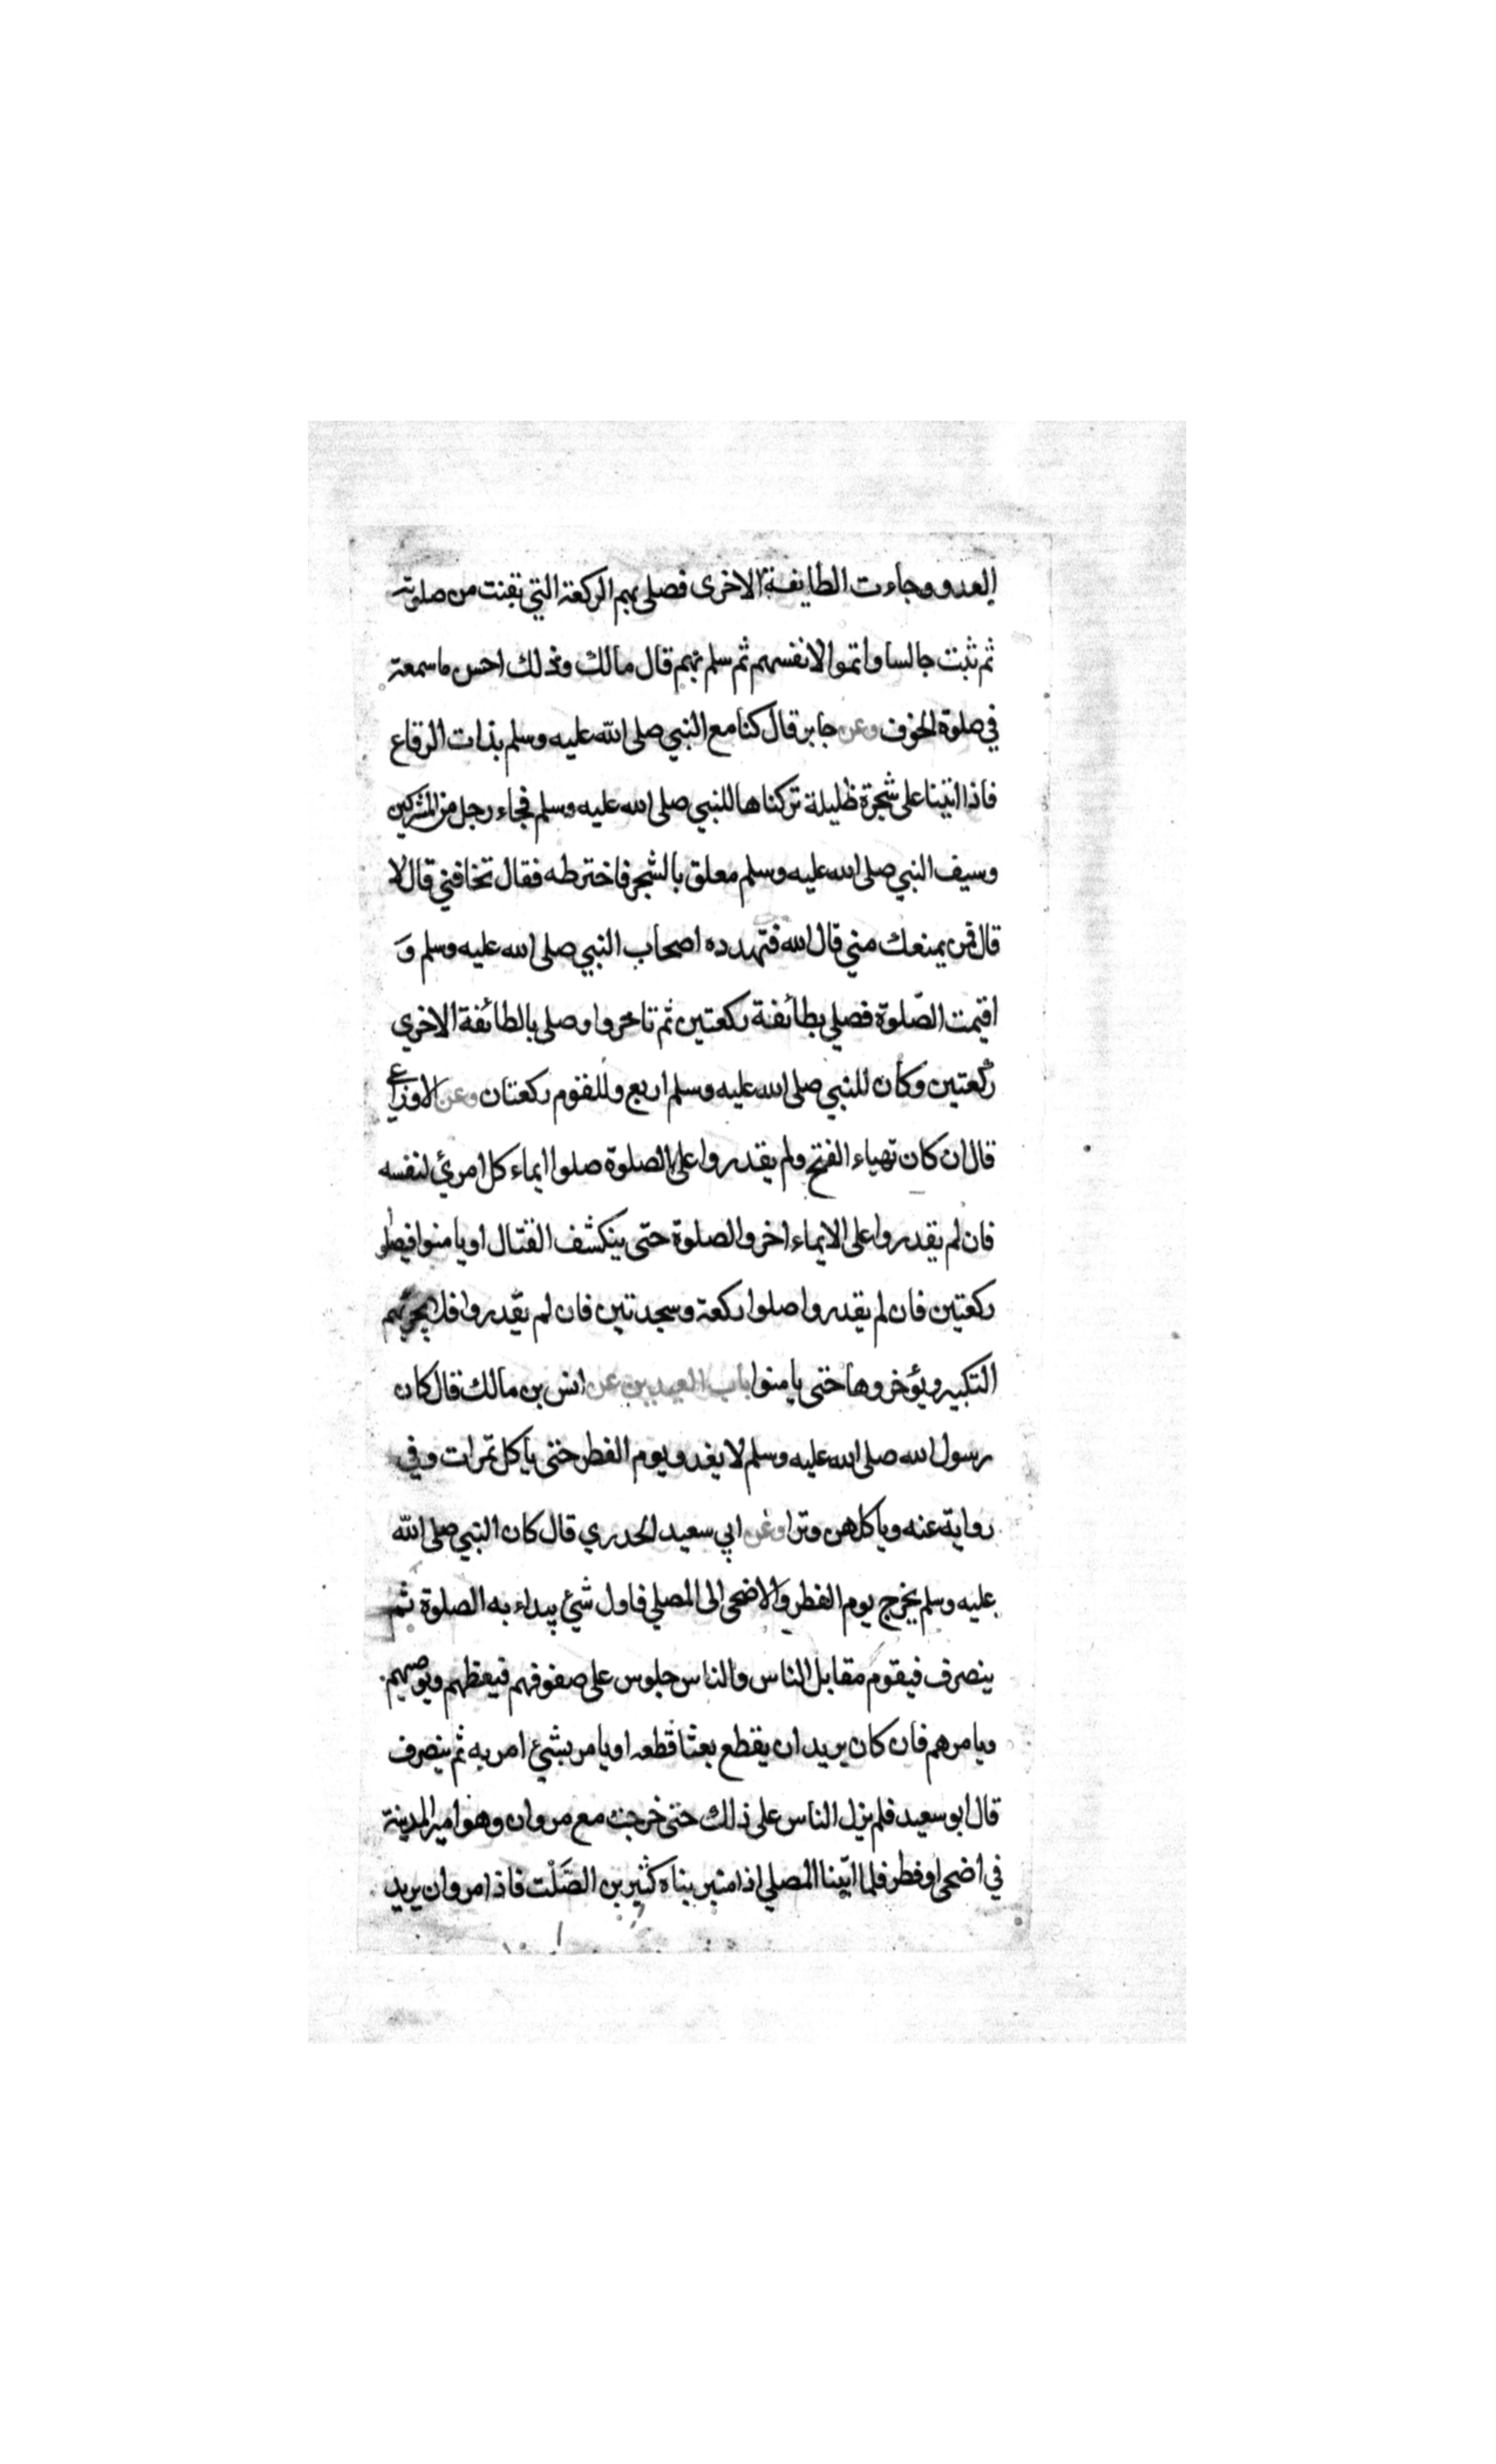 العدو وجاءت الطايفة الاخرى فصلى بهم الركعة التي بقيت من صلوته
ثم ثبت جالسا واتموا لانفسهم ثم سلم بهم قال مالك وذلك احسن ما سمعت
في صلوة الخوف وعن جابر قال كنا مع النبي صلى الله عليه وسلم بذات الرقاع
فاذا اتينا على شجرة ظليلة تركناها للنبي صلى الله عليه وسلم فجاء رجل من المشركين
وسيف النبي صلى الله عليه وسلم معلق بالشجر فاخترطه فقال تخافني قال لا
قال فمن يمنعك مني قال الله فتهدده اصحاب النبي صلى الله عليه وسلم وَ
اقيمت الصّلوة فصلى بطائفة ركعتين ثم تاخروا وصلى بالطائفة الاخرى
ركعتين وكان للنبي صلى الله عليه وسلم اربع وللقوم ركعتان وعن الاوزاعي
قال ان كان تهياء الفتح ولم يقدروا على الصلوة صلوا ايماء كل امرئ لنفسه
فان لم يقدروا على الايماء اخروا الصلوة حتى ينكشف القتال او يامنوا فيصلوا
ركعتين فان لم يقدروا صلوا ركعة وسجدتين فان لم يقدروا فلا يجزئهم
التكبير ويؤخروها حتى يامنوا باب العيدين عن انس بن مالك قال كان
رسول الله صلى الله عليه وسلم لا يغدو يوم الفطر حتى يأكل تمرات وفي
رواية عنه وياكلهن وترا وعن ابي سعيد الخدري قال كان النبي صلى الله
عليه وسلم يخرج يوم الفطر والاضحى الى المصلي فاول شئ يبداء به الصلوة ثم
ينصرف فيقوم مقابل الناس والناس جلوس على صفوفهم فيعظهم ويوصيهم
ويامرهم فان كان يريد ان يقطع بعثا قطعه او يامر بشئ امر به ثم ينصرف
قال ابو سعيد فلم يزل الناس على ذلك حتى خرجت مع مروان وهو امير المدينة
في اضحى او فطر فلما اتينا المصلي اذا منبر بناه كثير بن الصَّلْت فاذا مروان يريد